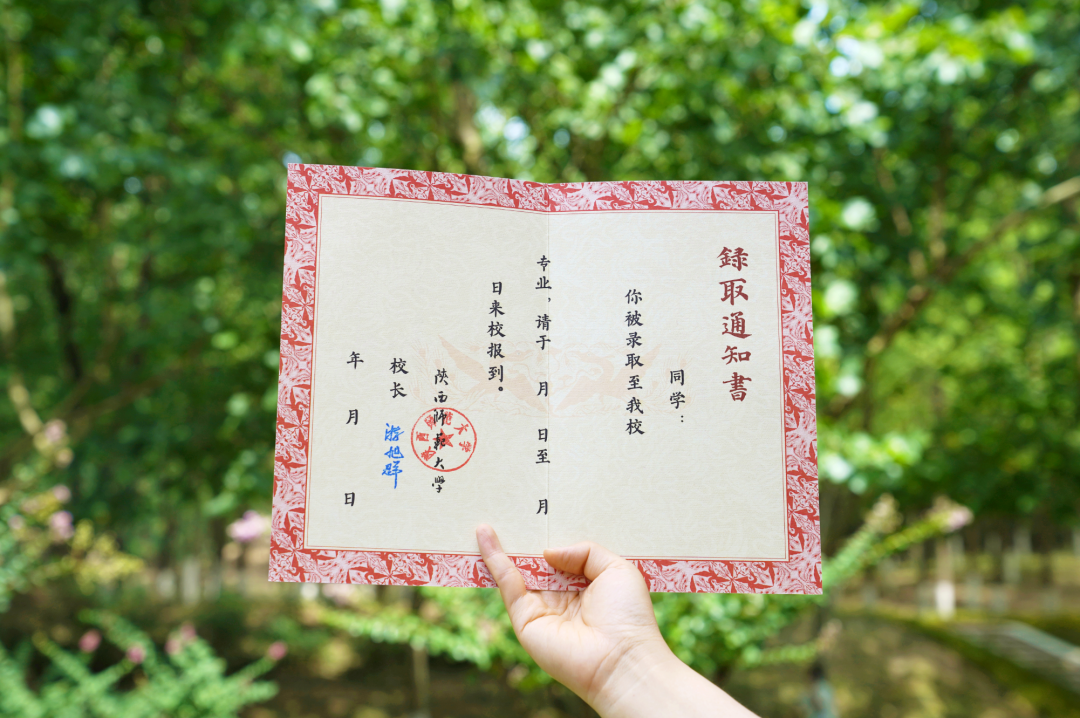 錄取通知書
同学：
你被录取至我校
专业，请于 月 日至 月
日来校报到。
陕西師範大學
校长 游旭群
年 月 日